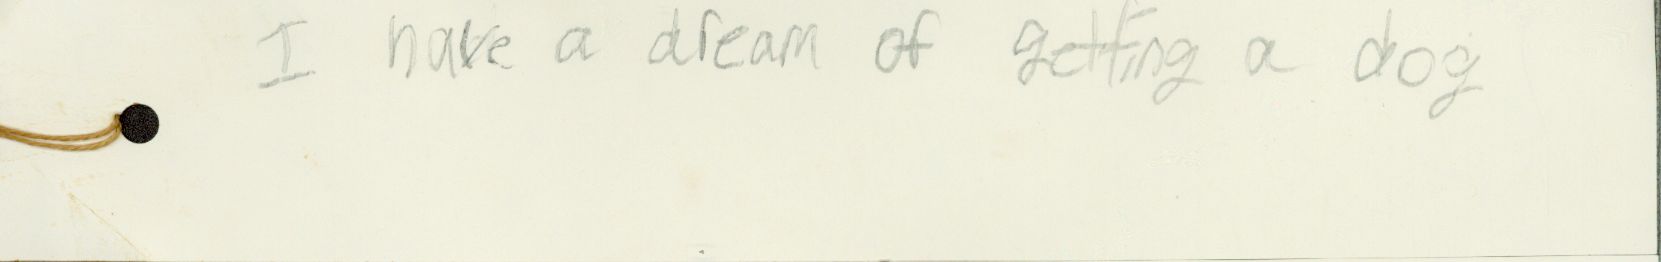 I have a dream of getting a dog